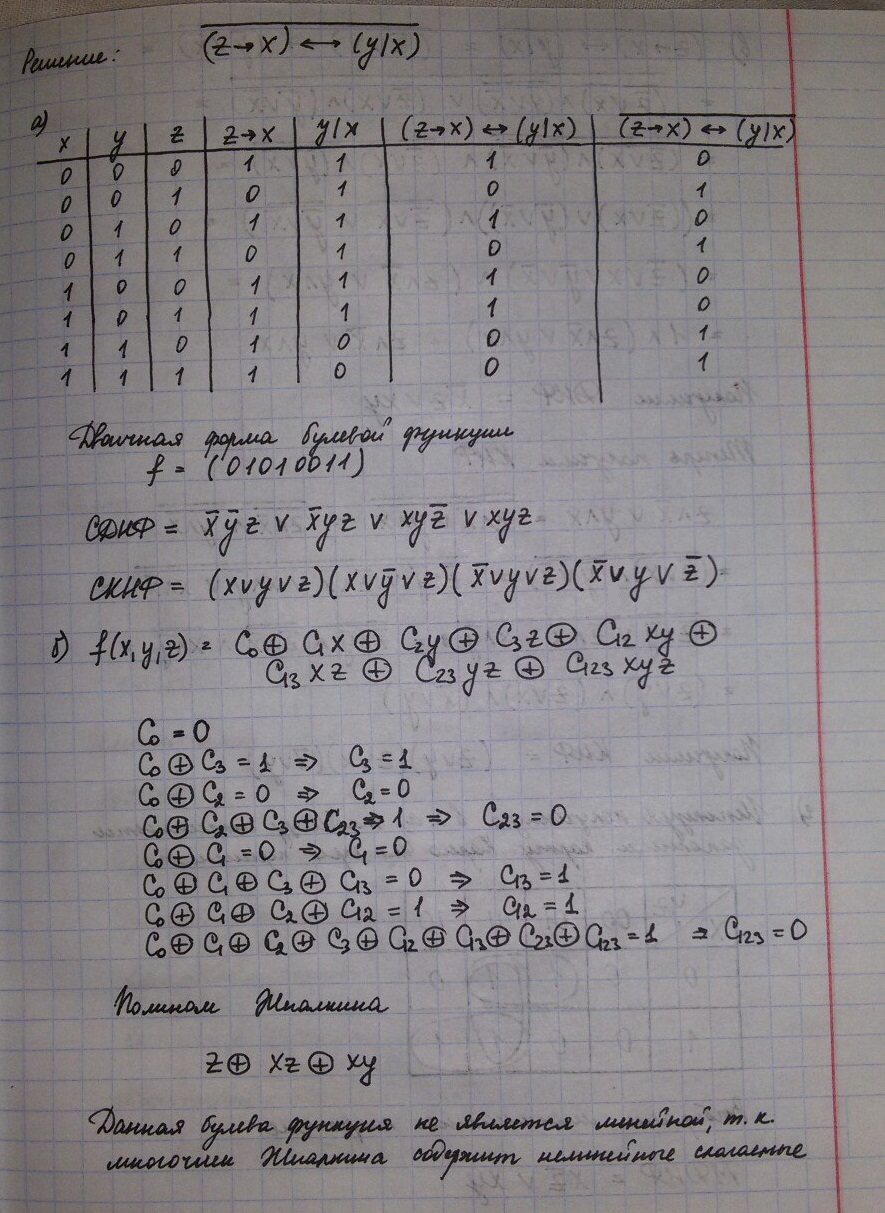 Решение: \overline{(z→x) ↔ (y|x)}
а)
x | y | z | z→x | y|x | (z→x) ↔ (y|x) | \overline{(z→x) ↔ (y|x)}
0 | 0 | 0 | 1 | 1 | 1 | 0
0 | 0 | 1 | 0 | 1 | 0 | 1
0 | 1 | 0 | 1 | 1 | 1 | 0
0 | 1 | 1 | 0 | 1 | 0 | 1
1 | 0 | 0 | 1 | 1 | 1 | 0
1 | 0 | 1 | 1 | 1 | 1 | 0
1 | 1 | 0 | 1 | 0 | 0 | 1
1 | 1 | 1 | 1 | 0 | 0 | 1
Двоичная форма булевой функции
f = (01010011)
СДНФ = x̄ȳz ∨ x̄yz ∨ xyz̄ ∨ xyz
СКНФ = (x∨y∨z)(x∨ȳ∨z)(x̄∨y∨z)(x̄∨y∨z̄)
б) f(x,y,z) = C₀⊕ C₁x⊕ C₂y ⊕ C₃z⊕ C₁₂xy ⊕
C₁₃xz ⊕ C₂₃yz ⊕ C₁₂₃xyz
C₀ = 0
C₀ ⊕ C₃ = 1 ⇒ C₃ = 1
C₀ ⊕ C₂ = 0 ⇒ C₂ = 0
C₀⊕ C₂⊕ C₃⊕ C₂₃ = 1 ⇒ C₂₃ = 0
C₀ ⊕ C₁ = 0 ⇒ C₁ = 0
C₀ ⊕ C₁ ⊕ C₃ ⊕ C₁₃ = 0 ⇒ C₁₃ = 1
C₀ ⊕ C₁ ⊕ C₂ ⊕ C₁₂ = 1 ⇒ C₁₂ = 1
C₀ ⊕ C₁ ⊕ C₂ ⊕ C₃ ⊕ C₁₂ ⊕ C₁₃⊕ C₂₃⊕ C₁₂₃ = 1 ⇒ C₁₂₃ = 0
Полином Жегалкина
z⊕ xz ⊕ xy
Данная булева функция не является линейной, т.к.
многочлен Жегалкина содержит нелинейные слагаемые